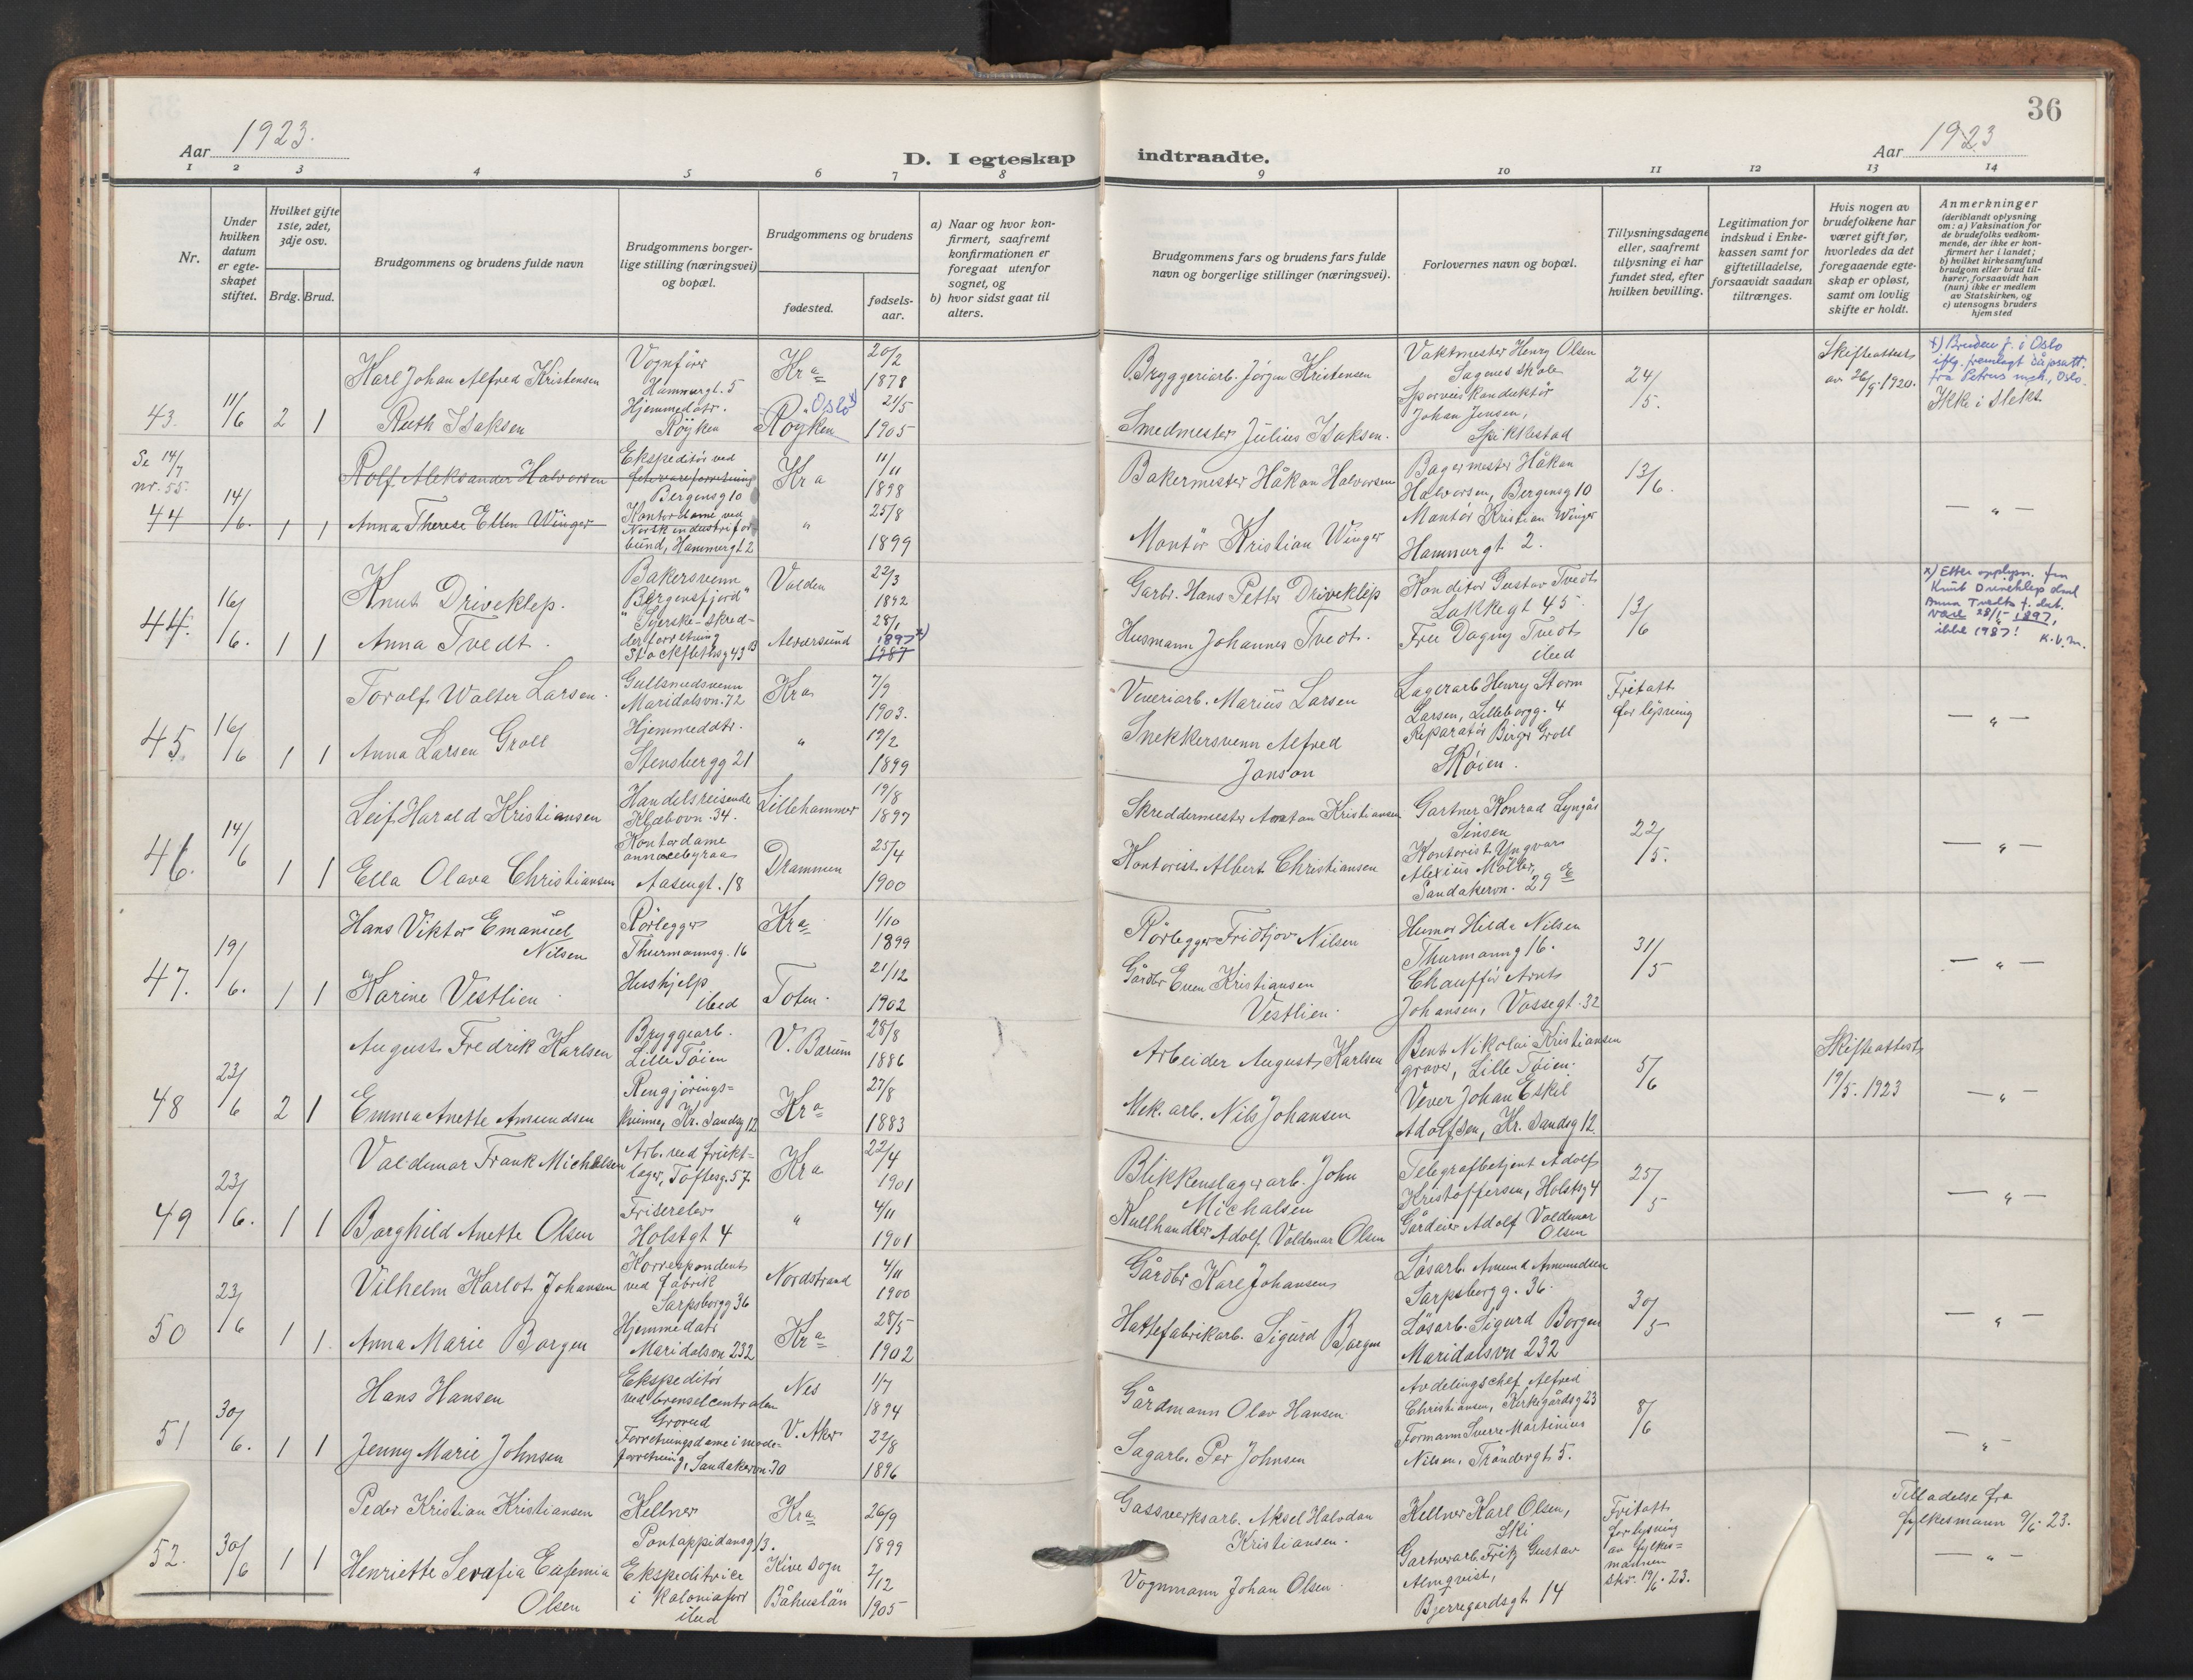 36
Aar 1923.
D. I egteskap
indtraadte.
Aar 1923
1 2 3 4 5 6 7 8 9 10 11 12 13 14
Nr.
Under hvilken datum er egteskapet stiftet.
Hvilket gifte 1ste, 2det, 3dje osv.
Brdg. Brud.
Brudgommens og brudens fulde navn
Brudgommens borgerlige stilling (næringsvei) og bopæl.
Brudgommens og brudens
fødested.
fødselsaar.
a) Naar og hvor konfirmert, saafremt konfirmationen er foregaat utenfor sognet, og
b) hvor sidst gaat til alters.
Brudgommens fars og brudens fars fulde navn og borgerlige stillinger (næringsvei).
Forlovernes navn og bopæl.
Tillysningsdagene eller, saafremt tillysning ei har fundet sted, efter hvilken bevilling.
Legitimation for indskud i Enkekassen samt for giftetilladelse, forsaavidt saadan tiltrænges.
Hvis nogen av brudefolkene har været gift før, hvorledes da det foregaaende egteskap er opløst, samt om lovlig skifte er holdt.
Anmerkninger
(deriblandt oplysning om: a) Vaksination for de brudefolks vedkommende, der ikke er konfirmert her i landet;
b) hvilket kirkesamfund brudgom eller brud tilhører, forsaavidt han (hun) ikke er medlem av Statskirken, og
c) utensogns bruders hjemsted
43. 11/6 2 1
Karl Johan Alfred Kristensen
Vognfører
Hammergt. 5
Kra
20/2
1878
Bryggeriarb. Jörgen Kristensen
Vaktmester Henry Olsen
Sagenes skole
24/5.
Skifteattest
av 26/9.1920.
x) Bruden f. i Oslo
iflg. fremlagt dåpsatt.
fra Petrus mgh., Oslo.
Ikke i slekt
Ruth Isaksen
Hjemmedatr.
Röyken
Oslo x)
Röyken
21/5
1905
Smedmester Julius Isaksen.
Sporveis konduktör
Johan Jensen,
Spikkestad
Se 14/7
nr. 55.
44 14/6. 1 1
Rolf Aleksander Halvorsen
Ekspeditör ved
fetevareforretning
Bergensg 10
Kra
11/11
1898
Bakermester Håkon Halvorsen
Bagermester Håkon
Halvorsen, Bergensg 10
13/6.
Anna Therese Ellen Winger
Kontordame ved
Norsk industrifor-
bund, Hammergt 2
"
25/8
1899
Montör Kristian Winger
Montör Kristian Winger
Hammergt 2.
— " —
44. 16/6. 1 1
Knut Driveklep.
Bakersvenn
"Bergensfjord"
Volden
22/3
1892
Garbr. Hans Petter Driveklep
Konditor Gustav Tvedt
Lakkegt 45
13/6
x) Etter opplysn. fra
Knut Driveklep skal
Anna Tvedts f. dat.
være 28/1 - 1897,
ikke 1987! K.V.M.
Anna Tvedt.
Syerske - skred-
derforretning
Stockflethsg 43
Alversund
28/1
1897 x)
1987
Husmann Johannes Tvedt.
Fru Dagny Tvedt
ibid
45. 16/6 1 1
Toralf Walter Larsen.
Gullsmedsvenn
Maridalsvn. 72
Kra
7/9
1903.
Veveriarb. Marius Larsen
Lagerarb Henry Storm
Larsen, Lilleborgg. 4
Fritatt
for lysning
Anna Larsen Groll
Hjemmedatr.
Stensbergg 21
"
19/2
1899
Snekkersvenn Alfred
Janson
Reparatör Birger Groll
Skøien.
— " —
46. 14/6 1 1
Leif Harald Kristiansen
Handelsreisende
Klæbovn. 34.
Lillehammer
19/8
1897
Skreddermester Anton Kristiansen
Gartner Konrad Lyngås
Sinsen
22/5.
Ella Olava Christiansen
Kontordame
annoncebyraa
Aasengt. 18
Drammen
25/4
1900
Kontorist Albert Christiansen
Kontorist Yngvar
Alexius Möller,
Sandakervn. 29 E
— " —
47. 19/6. 1 1
Hans Viktor Emanuel
Nilsen
Rörlegger
Thurmannsg. 16
Kra
1/10
1899
Rörlegger Fridtjov Nilsen
Humor Hilda Nilsen
Thurmanng 16.
31/5
Karine Vestlien
Hushjelp
ibid
Toten.
21/12
1902
Gårdbr Even Kristiansen
Vestlien.
Chaufför Arnt
Johansen, Vossegt. 32
— " —
48 23/6 2 1
August Fredrik Karlsen
Bryggearb.
Lille Töien
V. Bærum
28/8
1886
Arbeider August Karlsen
Bent Nikolai Kristiansen
graver, Lille Töien.
5/6
Skifteattest
19/5. 1923
Emma Anette Amundsen
Rengjörings-
kvinne, Kr. Sandsg 12
Kra
27/8
1883
Mek. arb. Nils Johansen
Vever Johan Eskil
Adolfsen, Kr. Sandsg 12.
— " —
49 23/6. 1 1
Valdemar Frank Michalsen
Arb. ved frukt-
lager, Toftesg. 57
Kra
22/4
1901
Blikkenslagerarb. John
Michalsen
Telegrafbetjent Adolf
Kristoffersen, Holstsg 4
25/5
Borghild Anette Olsen
Friserelev
Holstgt 4
"
4/11
1901
Kullhandler Adolf Valdemar Olsen
Gårdeier Adolf Valdemar
Olsen
— " —
50 23/6 1 1.
Vilhelm Karlot Johansen
Korrespondent
ved fabrik
Sarpsborgg 36
Nordstrand
4/11
1900
Gårdbr Karl Johansen
Løsarb. Amund Amundsen
Sarpsborg g. 36.
30/5
Anna Marie Borgen
Hjemmedatr
Maridalsvn 232
Kra
28/5
1902
Hattefabrikarb. Sigurd Borgen
Løsarb. Sigurd Borgen
Maridalsvn 232
— " —
51 30/6. 1 1
Hans Hansen
Ekspeditör
ved brenselcentralen
Grorud
Nes
1/7
1894
Gårdmann Olav Hansen
Avdelingschef Alfred
Christiansen, Kirkegårdsg 23
8/6
Jenny Marie Johnsen
Forretningsdame i mode-
forretning, Sandakervn 70
V. Aker
22/8
1896
Sagarb. Per Johnsen
Formann Sverre Martinius
Nilsen, Tröndergt. 5.
— " —
52. 30/6 1 1
Peder Kristian Kristiansen
Kellner
Pontoppidansg 13.
Kra
26/9
1899
Gassverksarb. Aksel Halvdan
Kristiansen.
Kellner Karl Olsen,
Ski
Fritatt
for lysning
av fylkes-
mannen
skr. 19/6. 23.
Tilladelse fra
fylkesmann 9/6. 23.
Henriette Serafia Eufemia
Olsen
Ekspeditrice
i kolonialforr
ibid
Kive sogn
Båhuslän
2/12
1905
Vognmann Johan Olsen.
Gartnerarb. Fritz Gustav
Almqvist,
Bjerregardsgt 14
— " —